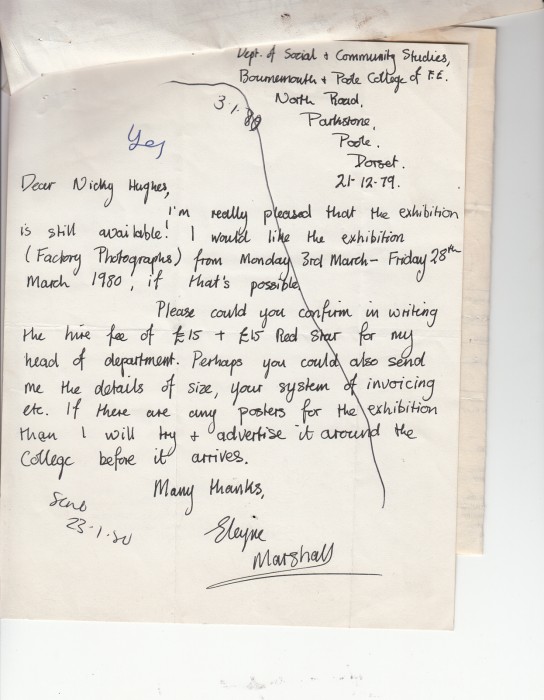 Dept. of Social + Community Studies,
Bournemouth + Poole College of F.E.
North Road,
Parkstone,
Poole.
Dorset.
21-12-79.
3.1.80
Yes
Dear Nicky Hughes,
I'm really pleased that the exhibition
is still available! I would like the exhibition
(Factory Photographs) from Monday 3rd March - Friday 28th
March 1980, if that's possible
Please could you confirm in writing
the hire fee of £15 + £15 Red Star for my
head of department. Perhaps you could also send
me the details of size, your system of invoicing
etc. If there are any posters for the exhibition
than I will try + advertise it around the
College before it arrives.
Many thanks,
Sent
23.1.80
Eleyne
Marshall